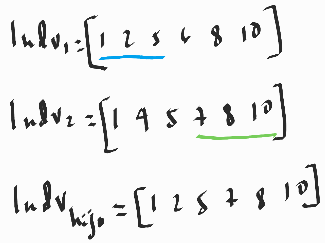 Indv₁ = [1 2 5 6 8 10]
Indv₂ = [1 4 5 7 8 10]
Indv hijo = [1 2 5 7 8 10]